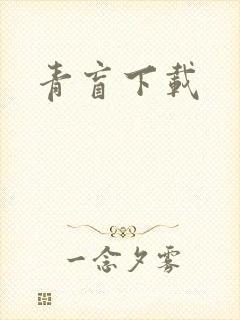 青盲下载
一念夕雾